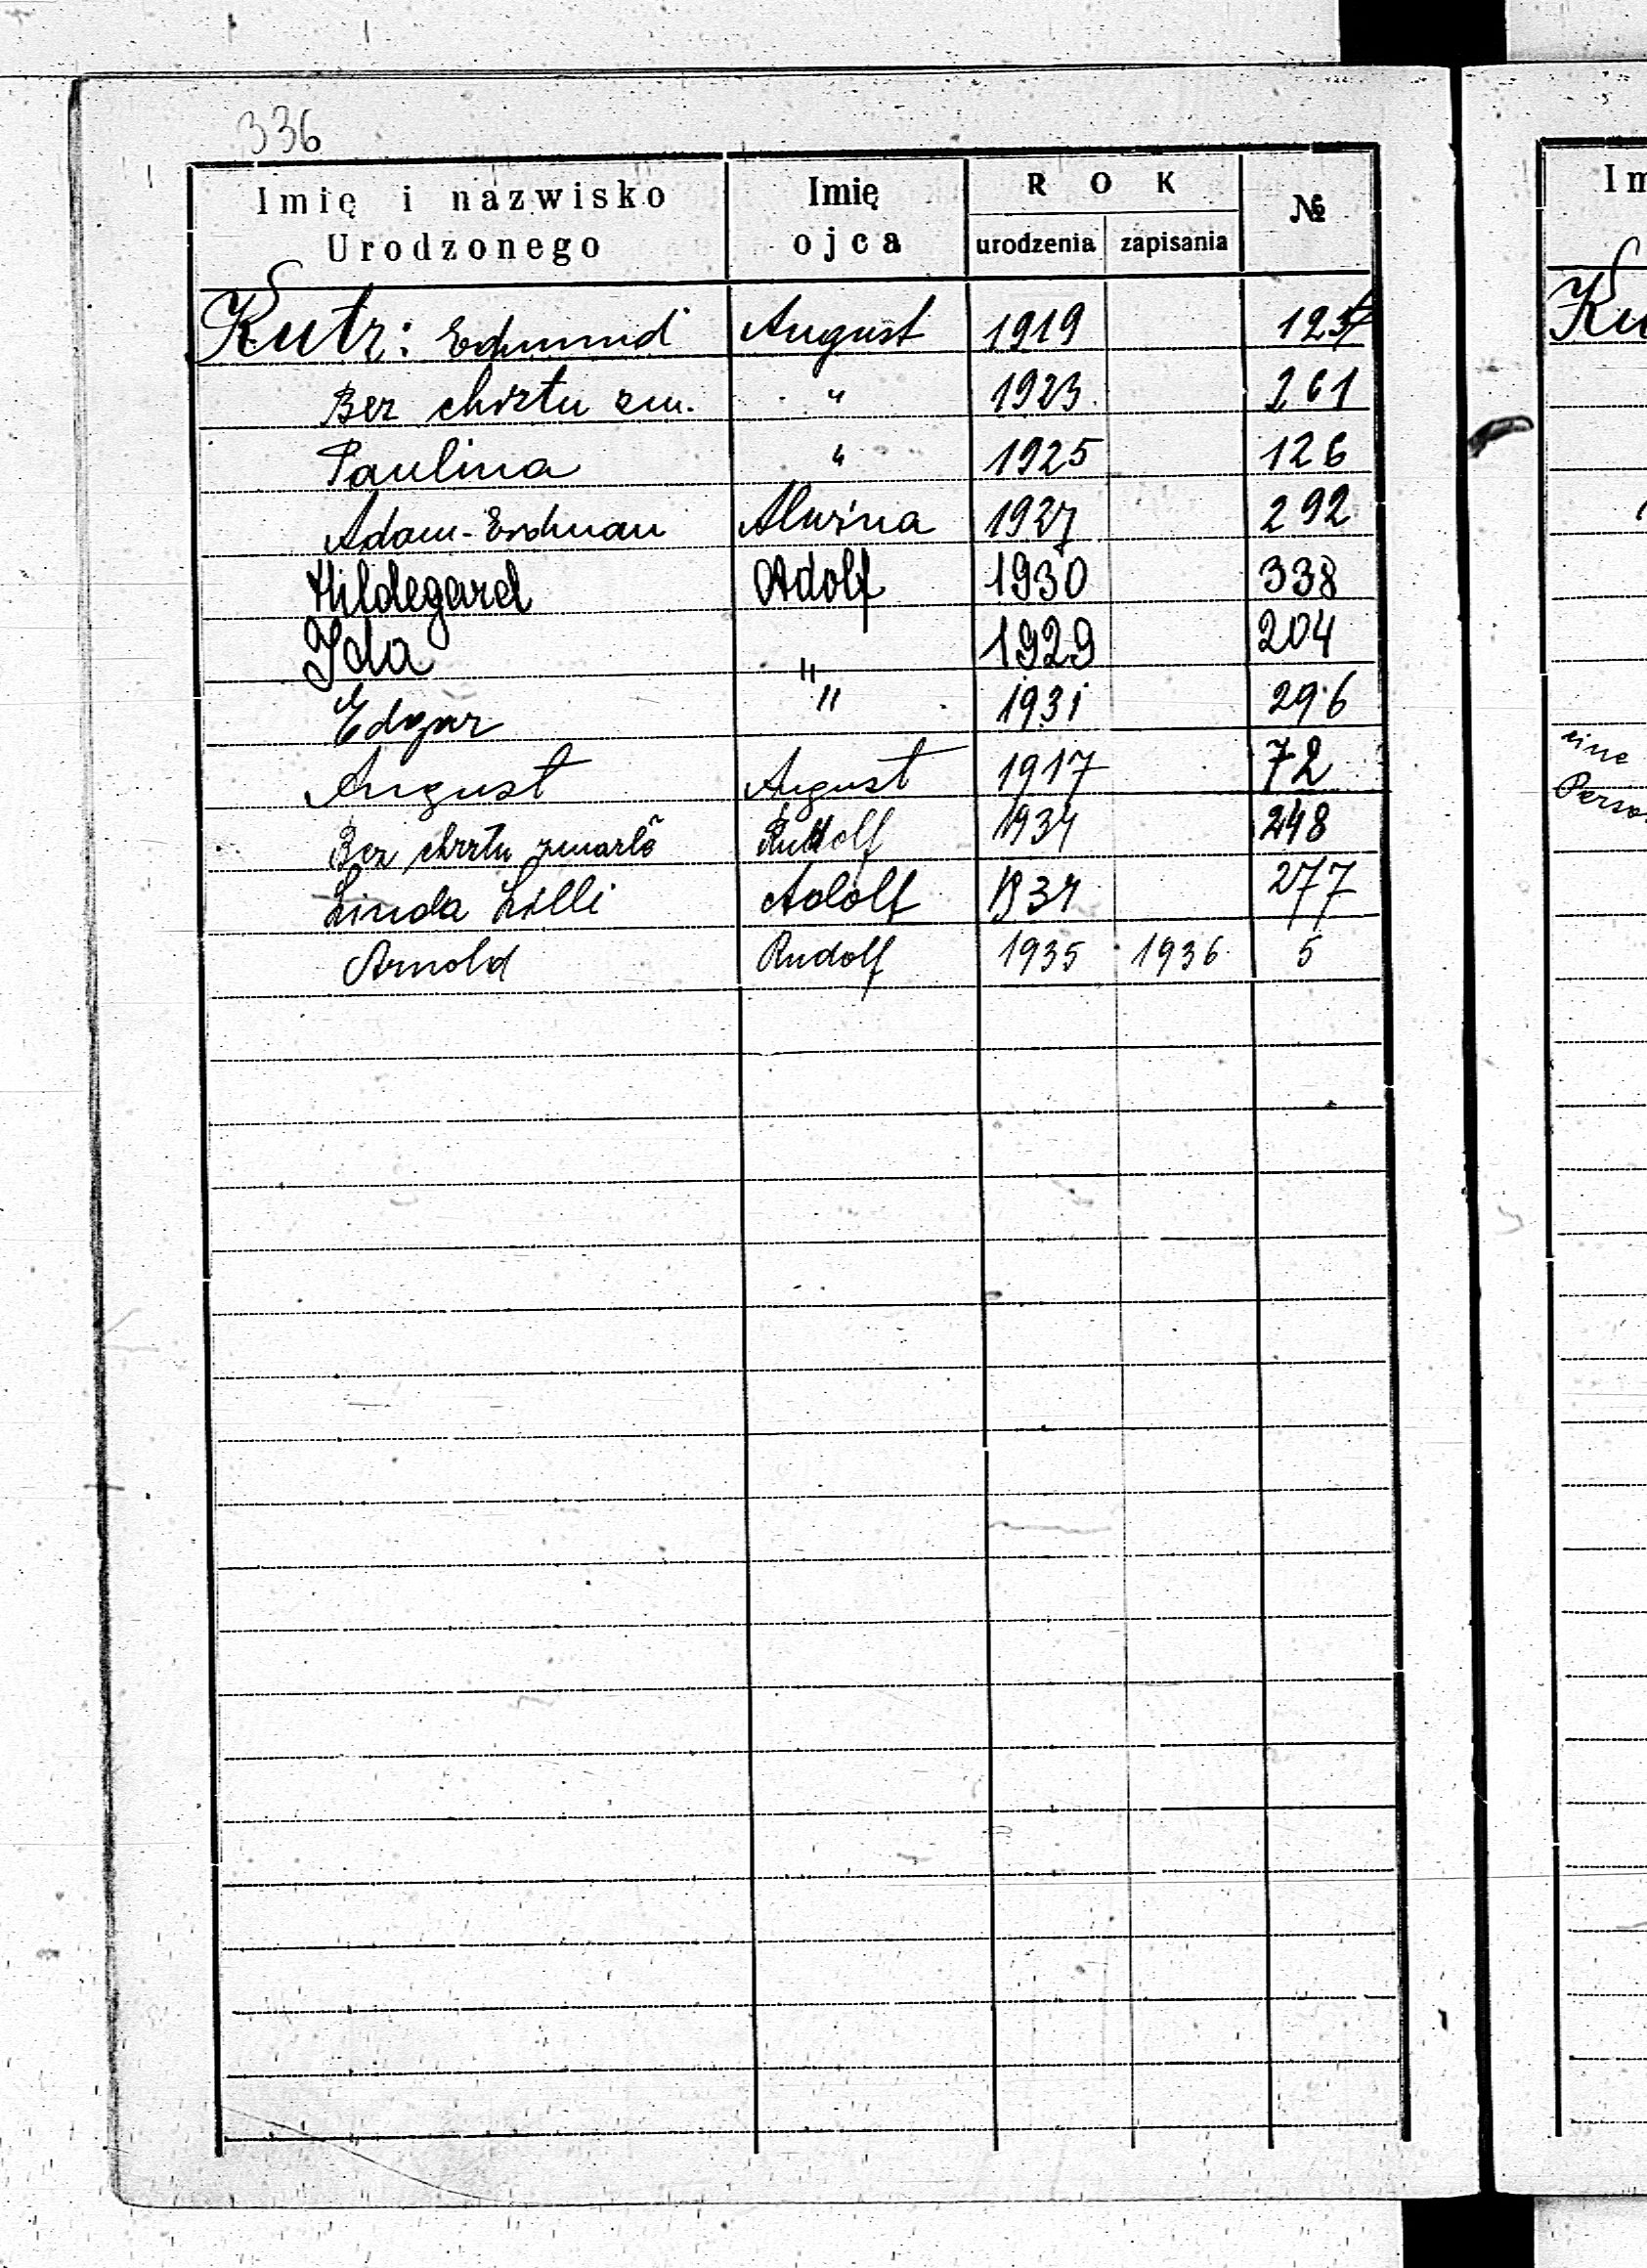 336
Imię i nazwisko Urodzonego Imię ojca ROK urodzenia zapisania №
Kutz: Edmund August 1919
Bez chrztu zm. " 1923 261
Paulina " 1925 126
Adam-Erdman Alwina 1927 292
Hildegard Adolf 1930 338
Ida " 1929 204
Edgar " 1931 296
August August 1917 72
Bez chrztu zmarłe Rudolf 1934 248
Linda Lilli Adolf 1934 277
Arnold Rudolf 1935 1936 5
Im
Ku
eine
Perso